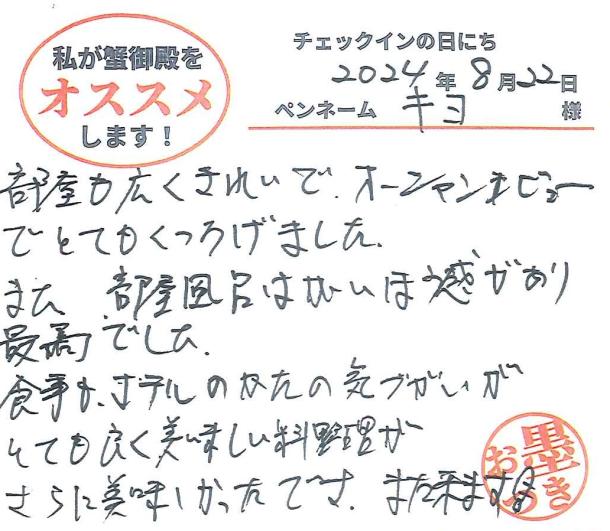 私が蟹御殿を
オススメ
します!
チェックインの日にち
2024年8月22日
ペンネーム キヨ 様
部屋も広くきれいで、オーシャンビュー
でとてもくつろげました。
また、部屋風呂はかいほう感があり
最高でした。
食事も、ホテルのかたの気づかいが
とても良く美味しい料理が
さらに美味しかったです。また来ます
お墨つき